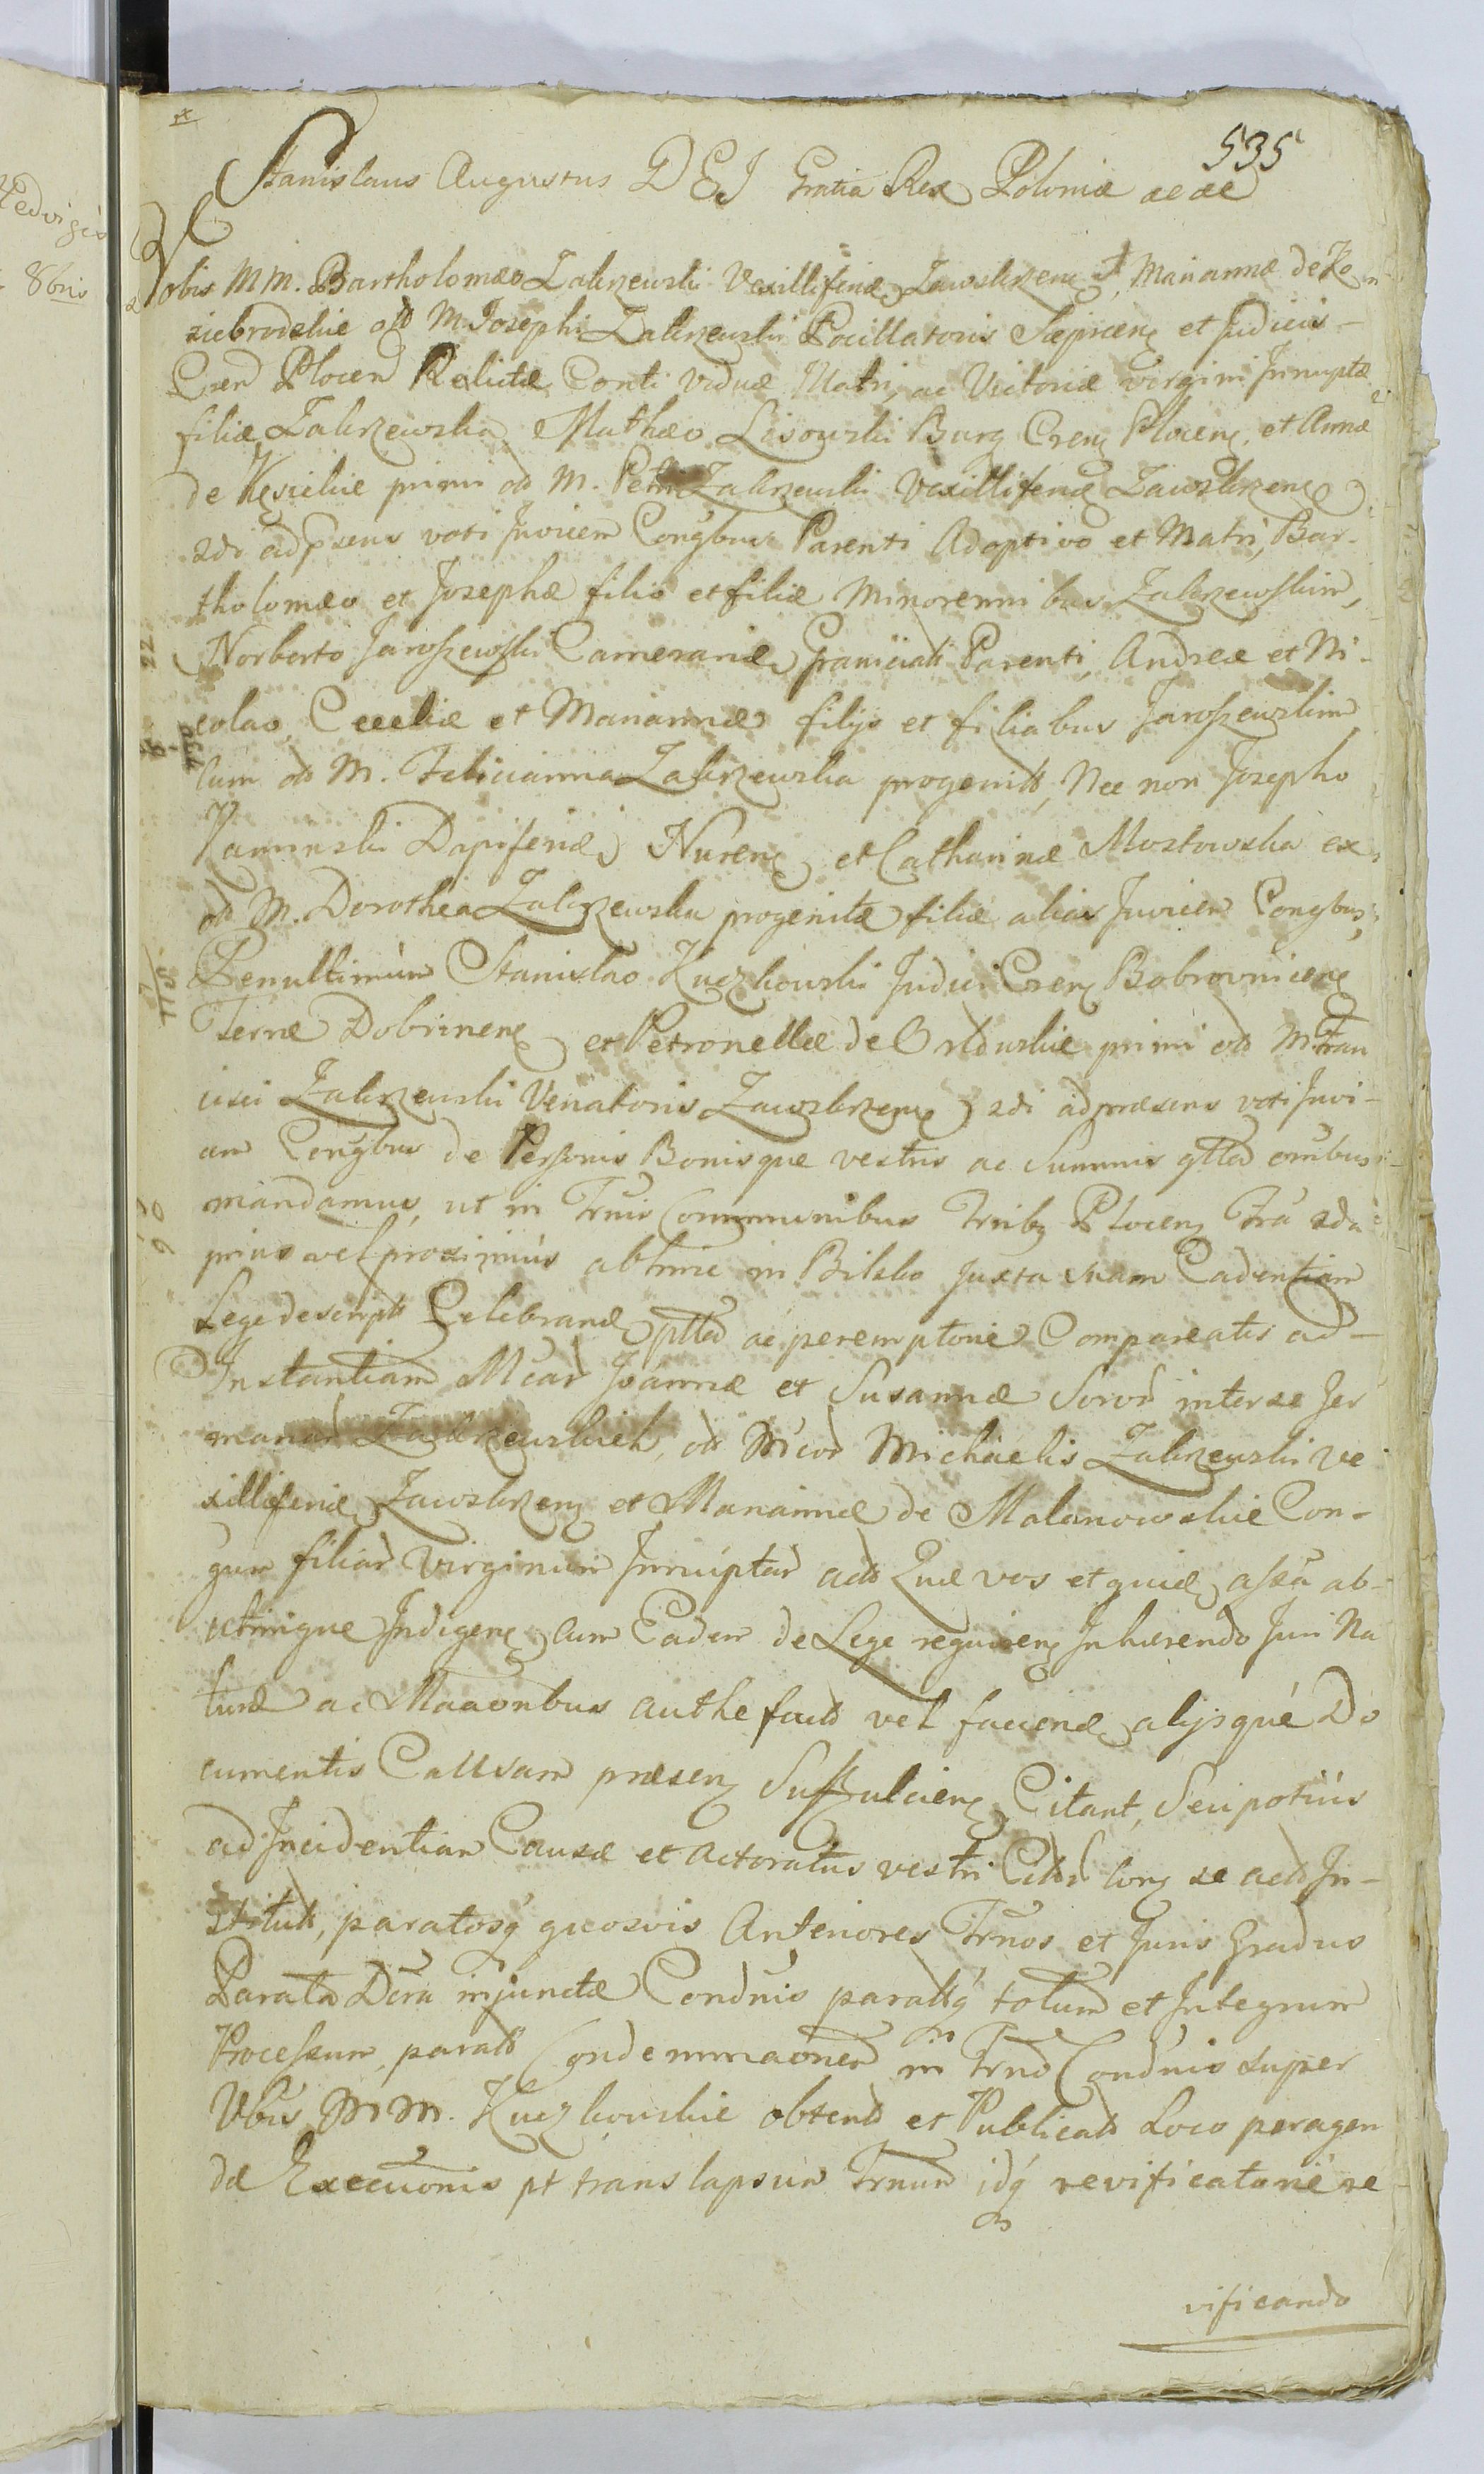 535
Stanislaus Augustus DEI Gratia Rex Poloniæ ae ae
Vobis MM. Bartholomæo Zakrzewski Vexilliferiæ Zawskrzen, Mariannæ de Ko
ziebrodzkie olb M. Josephi Zakrzewski Pocillatoris Sæpicen et Judicis
Cren Plocen Relictæ Conti viduæ Matri, ac Victoriæ virgini Innuptæ
filiæ Zakrzewska, Mathæo Lisowski Burg Cren Plocen, et Annæ
de Kęsickie primi olb M. Petri Zakrzewski Vexilliferiæ Zawskrzen
2di ad præsens voti Invicem Congbus Parenti Adoptivo et Matri, Bar-
tholomæo et Josephæ filio et filiæ Minorennibus Zakrzewskim,
Norberto Jaroszewski Camerariæ Graniciali Parenti, Andreæ et Ni-
colao, Cecliæ et Mariannæ filijs et filiabus Jaroszewskim
cum olb M. Felicianna Zakrzewska progenitb, Nec non Josepho
Kaminski Dapiferiæ Nuren et Catharinæ Mostowska ex
olb M. Dorothea Zakrzewska progenitæ filiæ alias Invicem Congbus,
Penultimùm Stanislao Kuczkowski Judici Cren Bobrownicen
Terræ Dobrinen et Petronellæ de Orłowskie primi olb M. Fran
cisci Zakrzewski Venatoris Zawskrzen 2di ad præsens voti Invi-
cem Congbus de Personis Bonisque vestris ac Summis gttd omibus
mandamus, ut in Trnis Communibus Trrlbg Plocen Fra 2da
prius vel proximiùs abhinc in Bilsko juxta suam Cadentiam
Lege descriptb Celebrand pttd ac peremptorie Compareatis ad
Instantiam Mcar Joannæ et Susannæ Soror inter se Ger
manar Zakrzewskich, olb Mcor Michaelis Zakrzewski Ve
xilliferiæ Zawskrzen et Mariannæ de Malanowskie Con-
gum filiar Virginum Innuptar actb Quæ vos et quia assa ab-
utrinque Indigen cum Eadem de Lege requiren Inhærendo Juri Na
turæ ac Maaonibus authe factb vel faciend alijsque Do
cumentis Causam præsen Suffulcien Citant, Seu potiùs
ad Incidentiam Causæ et Actoratus vestri Citatb cong se actb In-
stitutb, paratosq quosvis Anteriores Trnos et Juris Gradus
Parata Dcra injunctæ Condnis paratbq totum et Integrum
Processum, paratb Condemnaonem in Trno Condnis super
Vbis MM. Kuczkowskie obtentb et Publicatb Loco peragen
dæ Execuonis pt translapsum Trnum idq revificatorie re
vificando